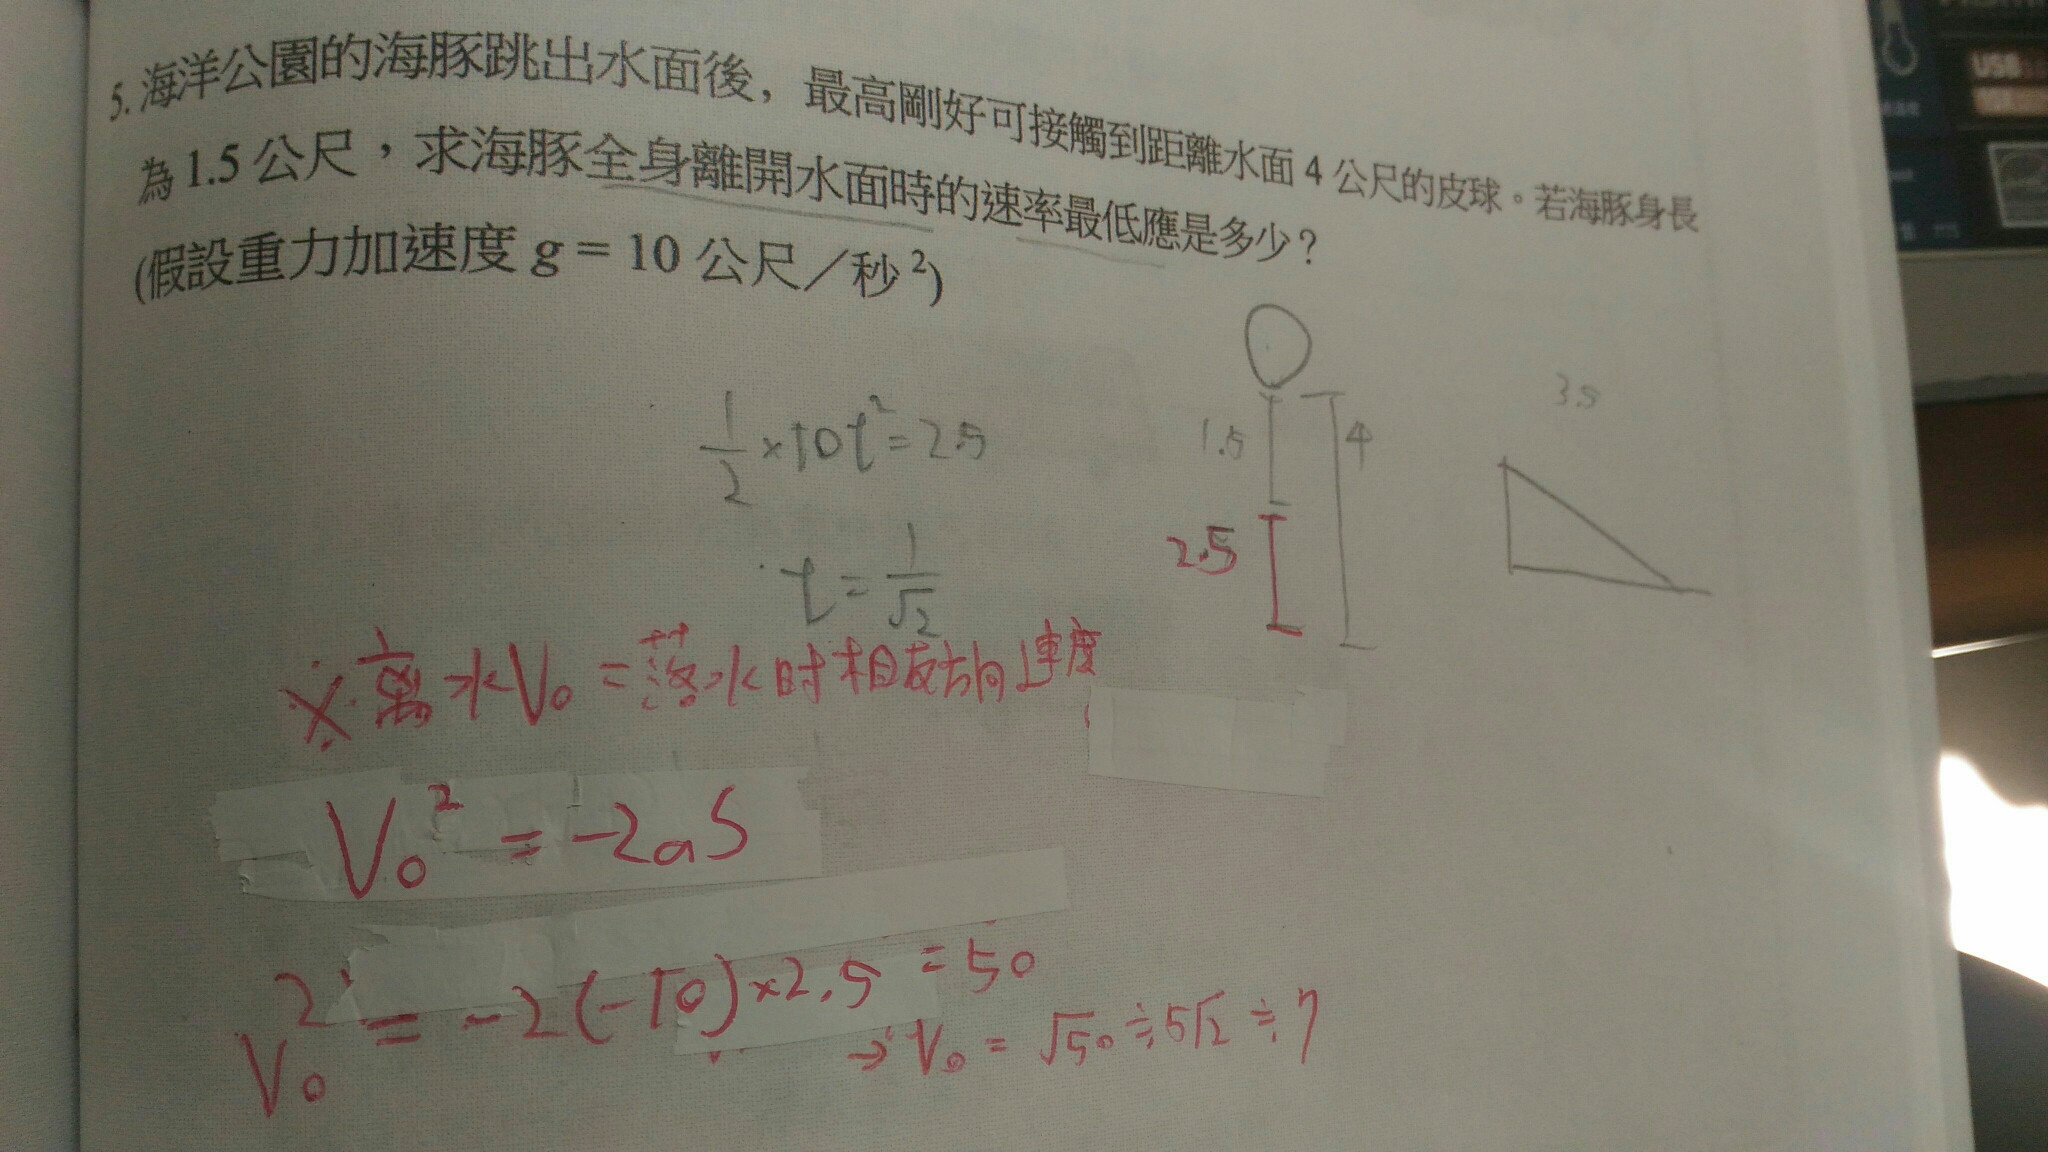 5. 海洋公園的海豚跳出水面後，最高剛好可接觸到距離水面 4 公尺的皮球。若海豚身長
為 1.5 公尺，求海豚全身離開水面時的速率最低應是多少？
(假設重力加速度 g = 10 公尺／秒²)
3.5
1/2 × 10t² = 2.5
1.5
4
2.5
t = 1/√2
※ 离水V₀ = 落水时相反方向速度
V₀² = -2aS
V₀² = -2(-10)×2.5 = 50
→ V₀ = √50 ≒ 5√2 ≒ 7
USB